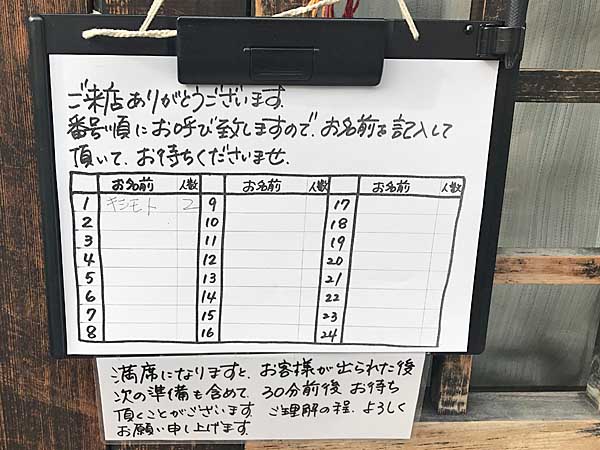 ご来店ありがとうございます.
番号順にお呼び致しますので、お名前を記入して
頂いて、お待ちくださいませ.
お名前 人数 お名前 人数 お名前 人数
1 キシモト 2 9 17
2 10 18
3 11 19
4 12 20
5 13 21
6 14 22
7 15 23
8 16 24
満席になりますと、お客様が出られた後
次の準備も含めて、30分前後お待ち
頂くことがございます. ご理解の程、よろしく
お願い申し上げます.